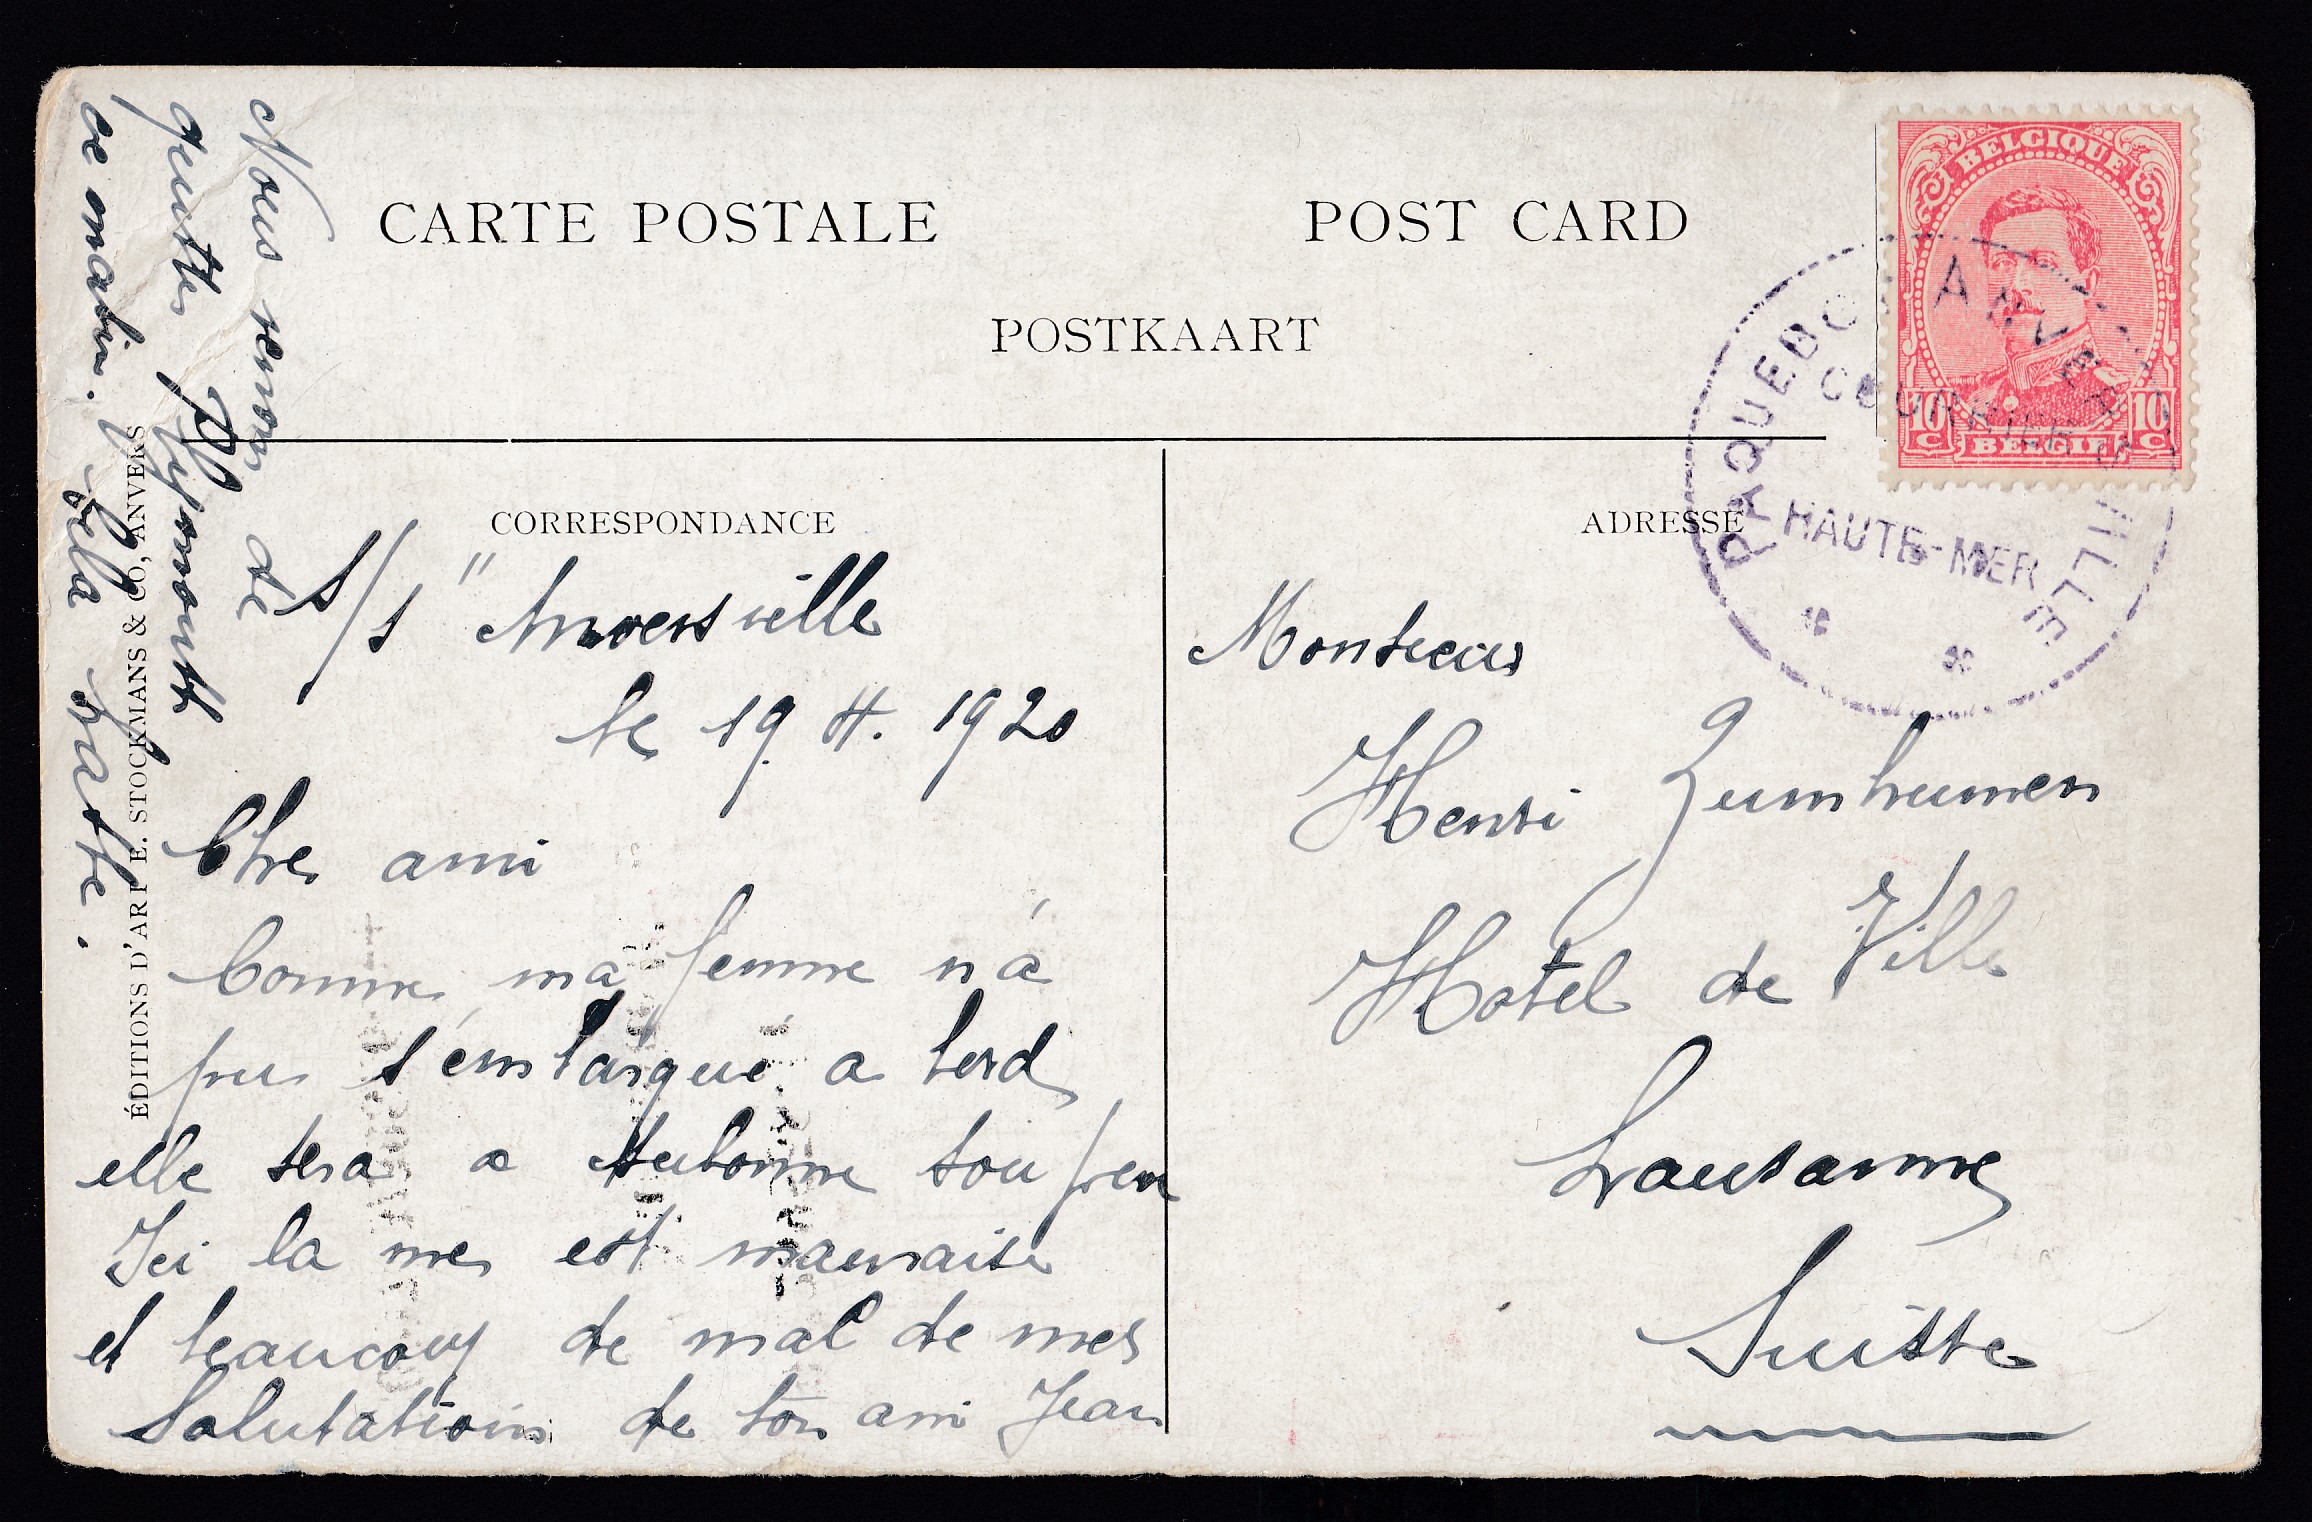 CARTE POSTALE
POST CARD
POSTKAART
BELGIQUE
10 C
10 C
BELGIE
PAQUEBOT ANVERSVILLE
COURRIER
HAUTE-MER
CORRESPONDANCE
ADRESSE
ÉDITIONS D'ART E. STOCKMANS & CO, ANVERS
Nous venons de
quitter Plymouth
ce matin.
hatte.
S/S "Anversville
le 19. II. 1920
Cher ami
Comme ma femme n'a
pu s'embarqué a bord
elle sera a Aubonne sou peu
Ici la mer est mauvaise
et beaucoup de mal de mer
Salutations de ton ami Jean
Monsieur
Henri Zumhumen
Hotel de Ville
Lausanne
Suisse